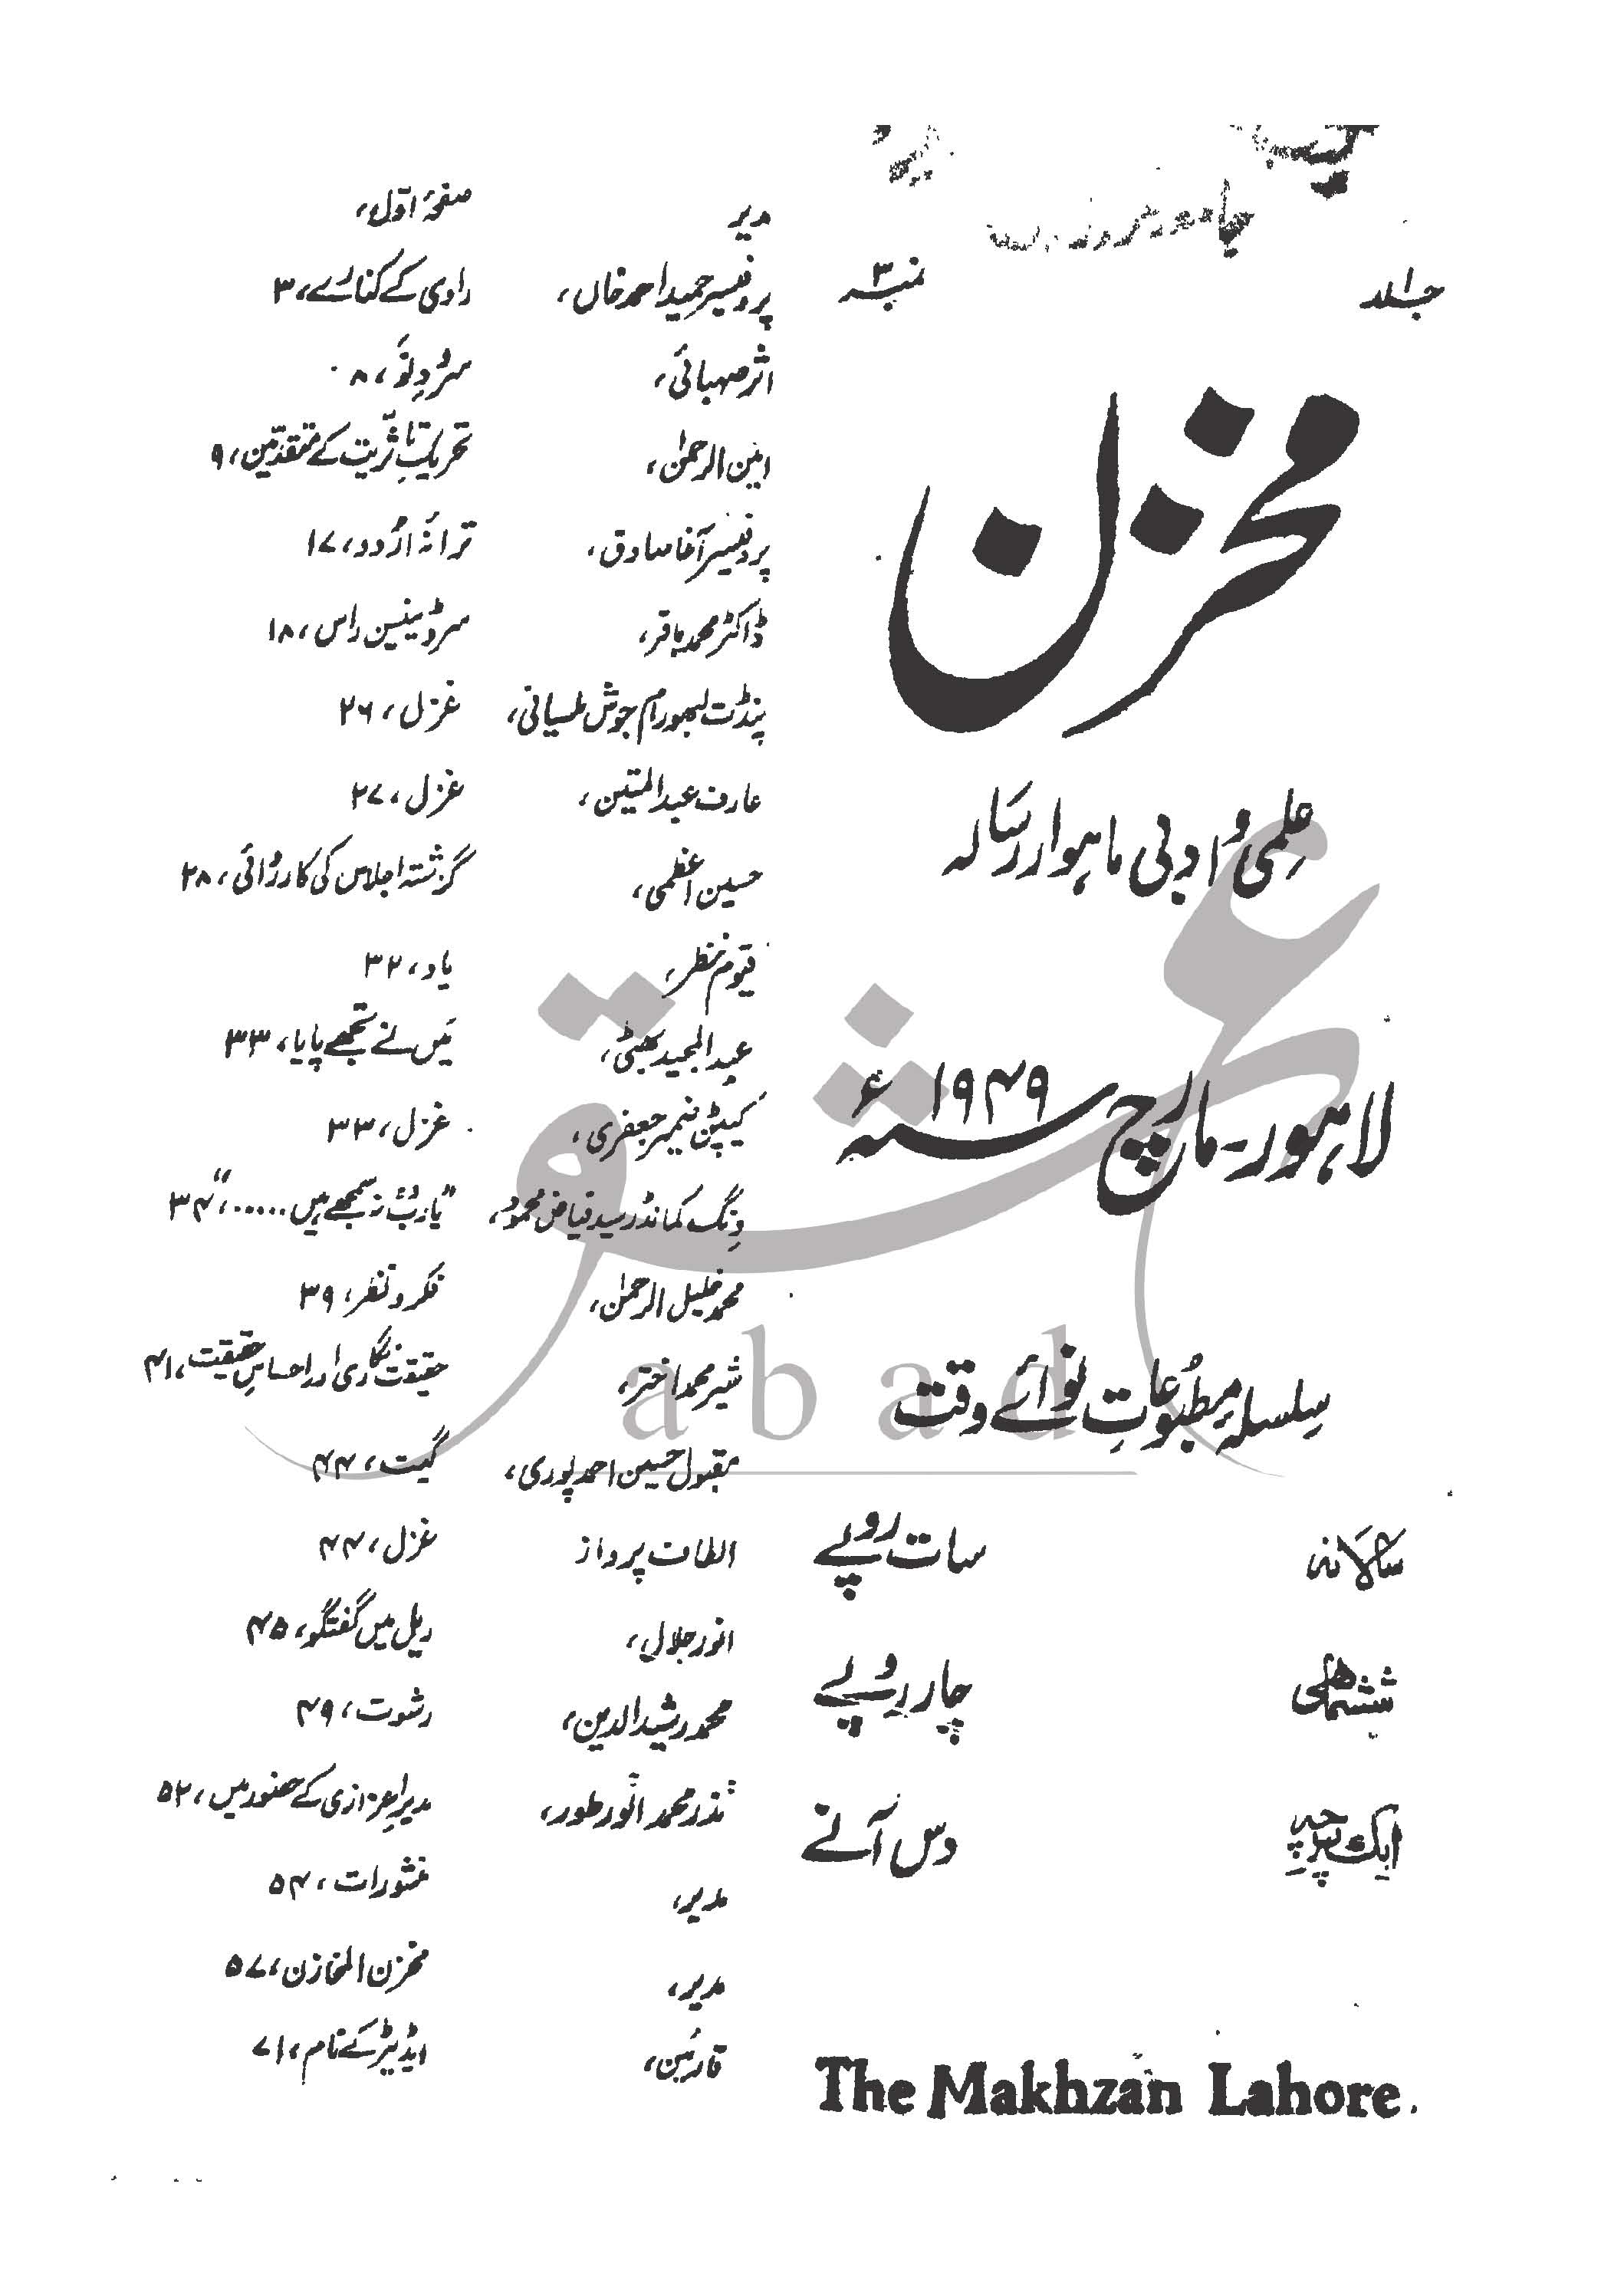 جلد ۱
نمبر ۳
مخزن
علمی و ادبی ماہوار رسالہ
لاہور۔ مارچ سنہ ۱۹۴۹ء
سلسلہ مطبوعاتِ نوائے وقت
سالانہ سات روپے
ششماہی چار روپے
ایک پرچہ دس آنے
The Makhzan Lahore.
مدیر صفحۂ اوّل،
پروفیسر حمید احمد خاں، راوی کے کنارے، ۳
اثر صہبائی، سرُودِ نَو، ۸
امین الرحمٰن، تحریکِ تاثّریت کے متقدّمین، ۹
پروفیسر آغا صادق، ترانۂ اُردو، ۱۷
ڈاکٹر محمد باقر، سر ڈینیسن راس، ۱۸
پنڈت لبھو رام جوش ملسیانی، غزل، ۲۶
عارف عبدالمتین، غزل، ۲۷
حسین اعظمی، گزشتہ اجلاس کی کارروائی، ۲۸
قیوم نظر، یاد، ۳۲
عبدالمجید بھٹی، میں نے تجھے پایا، ۳۳
کیپٹن ضمیر جعفری، غزل، ۳۳
وِنگ کمانڈر سید فیاض محمود، "یارب نہ سمجھے ہیں ......"، ۳۴
محمد خلیل الرحمٰن، فکر و نظر، ۳۹
شیر محمد اختر، حقیقت نگاری اور احساسِ حقیقت، ۴۱
مقبول حسین احمد پوری، گیت، ۴۴
الطاف پرواز غزل، ۴۴
انور جلال، ریل میں گفتگو، ۴۵
محمد رشید الدین، رشوت، ۴۹
نذر محمد انور طور، مدیرِ اعزازی کے حضور میں، ۵۲
مدیر، منشورات، ۵۴
مدیر، مخزن المخازن، ۵۷
قارئین، ایڈیٹر کے نام، ۷۱
عشق
abad